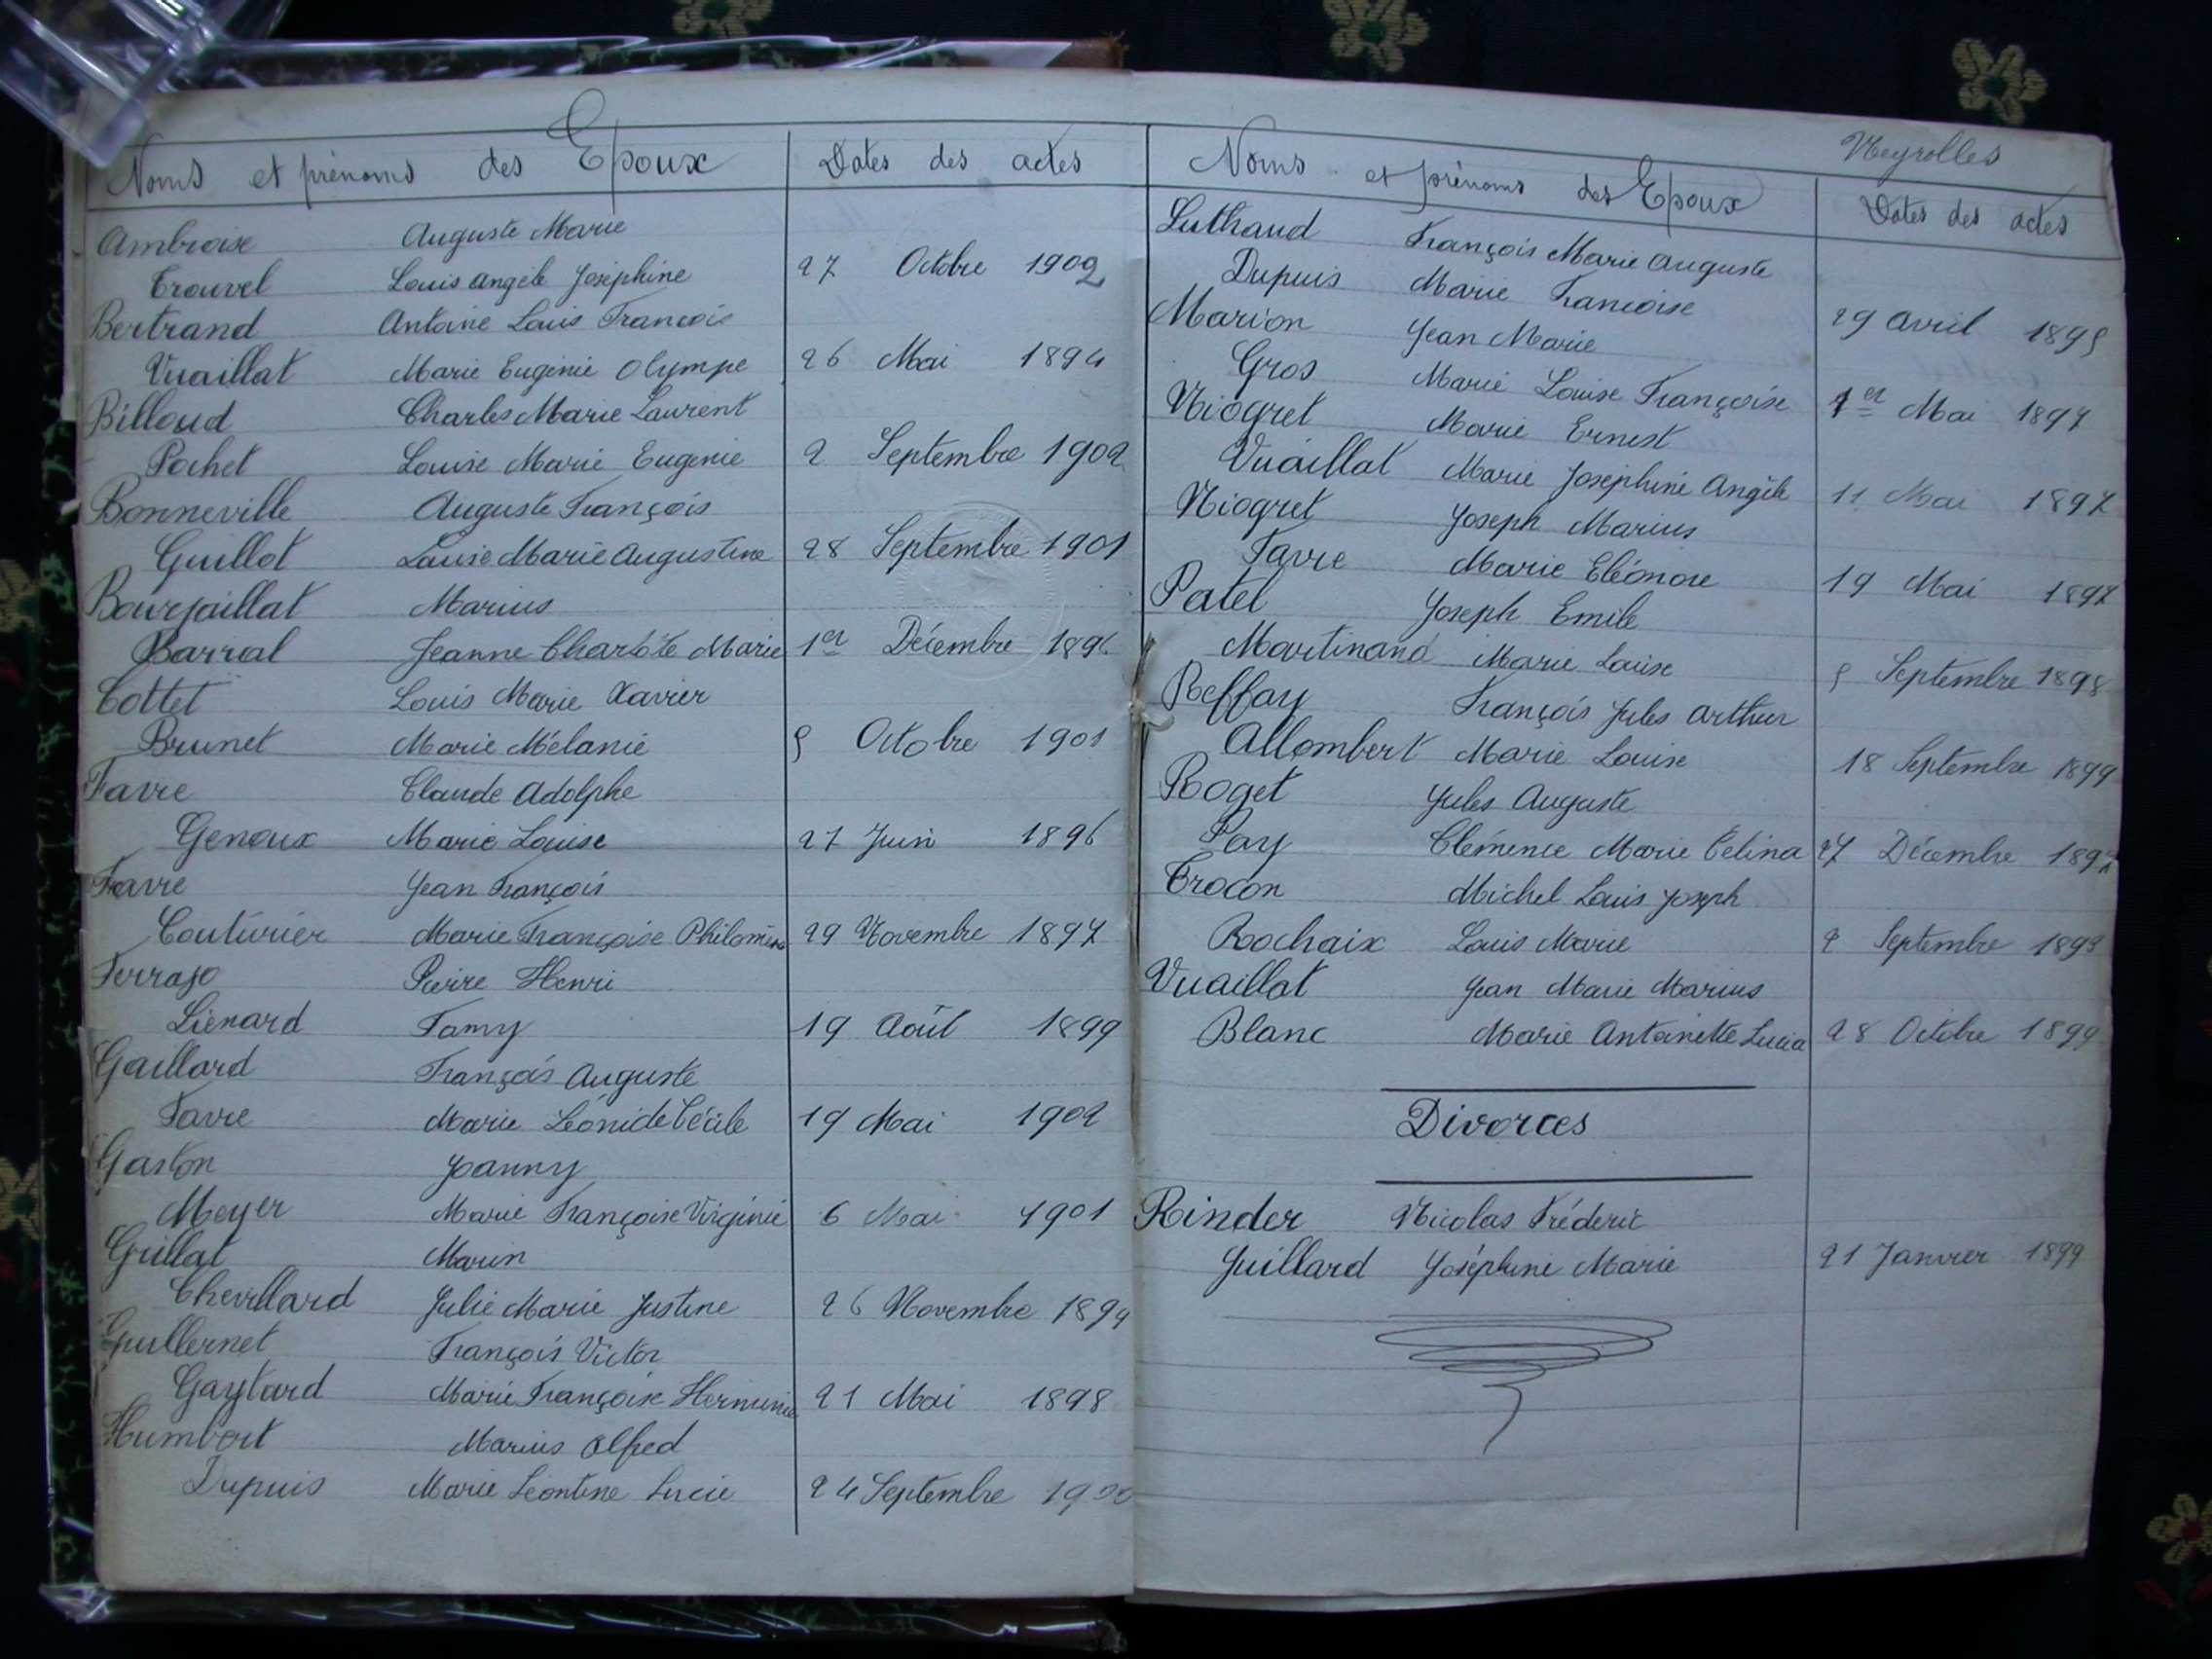 Noms et prénoms des Epoux Dates des actes
Ambroise Auguste Marie
Trouvel Louis Angèle Joséphine 27 Octobre 1902
Bertrand Antoine Louis François
Vuaillat Marie Eugénie Olympe 26 Mai 1894
Billoud Charles Marie Laurent
Pochet Louise Marie Eugénie 2 Septembre 1902
Bonneville Auguste François
Guillot Louise Marie Augustine 28 Septembre 1901
Bourjaillat Marius
Barral Jeanne Charlotte Marie 1er Décembre
Cottet Louis Marie Xavier
Brunet Marie Mélanie 5 Octobre 1901
Favre Claude Adolphe
Genoux Marie Louise 27 Juin 1896
Favre Jean François
Couturier Marie Françoise Philomène 29 Novembre 1897
Ferrajo Pierre Henri
Liénard Famy 19 Août 1899
Gaillard François Auguste
Favre Marie Léonide Cécile 19 Mai 1902
Gaston Joanny
Meyer Marie Françoise Virginie 6 Mai 1901
Grillat Marin
Chevillard Julie Marie Justine 26 Novembre
Guillernet François Victor
Gaytard Marie Françoise Herminie 21 Mai 1898
Humbert Marius Alfred
Dupuis Marie Léontine Lucie 24 Septembre 1900
Neyrolles
Noms et prénoms des Epoux Dates des actes
Luthaud François Marie Auguste
Dupuis Marie Francoise 29 Avril 1895
Marion Jean Marie
Gros Marie Louise Françoise 1er Mai 1897
Niogret Marie Ernest
Vuaillat Marie Joséphine Angèle 11 Mai 1897
Niogret Joseph Marius
Favre Marie Eléonore 19 Mai 1897
Patel Joseph Emile
Martinand Marie Louise 5 Septembre 1898
Reffay François Jules Arthur
Allombert Marie Louise 18 Septembre 1899
Roget Jules Auguste
Pay Clémence Marie Célina 27 Décembre
Trocon Michel Louis Joseph
Rochaix Louis Marie 2 Septembre 1893
Vuaillat Jean Marie Marius
Blanc Marie Antoinette Lucia 28 Octobre 1899
Divorces
Rinder Nicolas Fréderic
Guillard Joséphine Marie 21 Janvier 1899